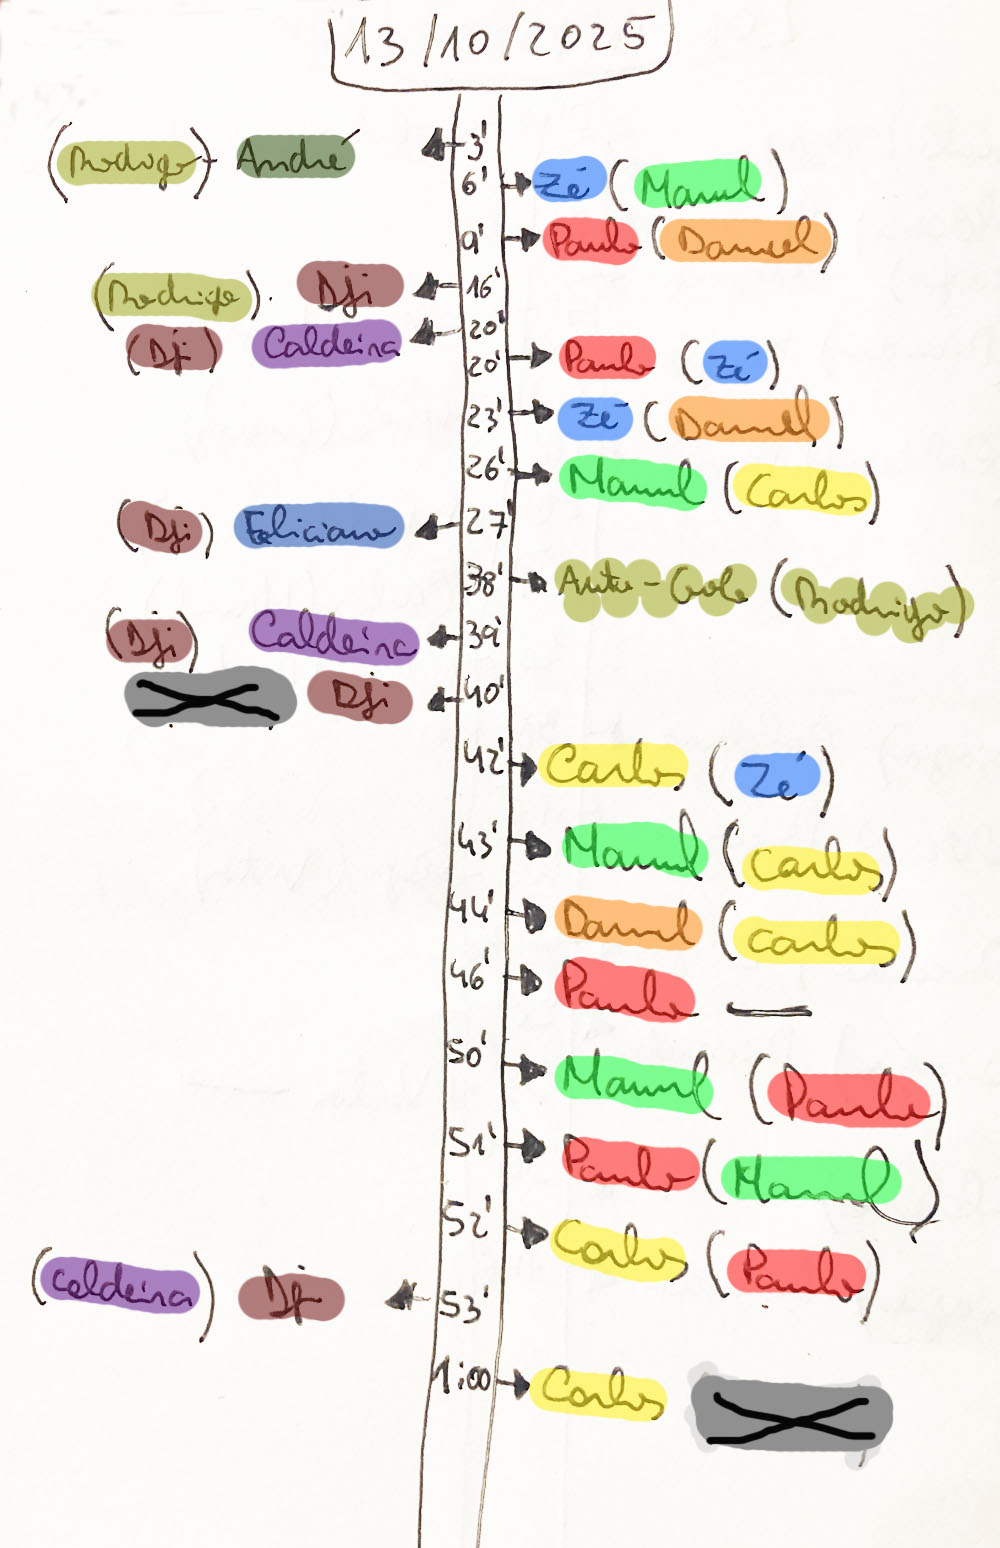 13/10/2025
(Rodrigo) - André 3'
6' Zé (Manuel)
9' Paulo (Daniel)
(Rodrigo). Dji 16'
(Dji) Caldeira 20'
20' Paulo (Zé)
23' Zé (Daniel)
26' Manuel (Carlos)
(Dji) Feliciano 27'
38' Auto-Golo (Rodrigo)
(Dji) Caldeira 39'
Dji 40'
42' Carlos (Zé)
43' Manuel (Carlos)
44' Daniel (Carlos)
46' Paulo —
50' Manuel (Paulo)
51' Paulo (Manuel)
52' Carlos (Paulo)
(Caldeira) Dji 53'
1:00 Carlos